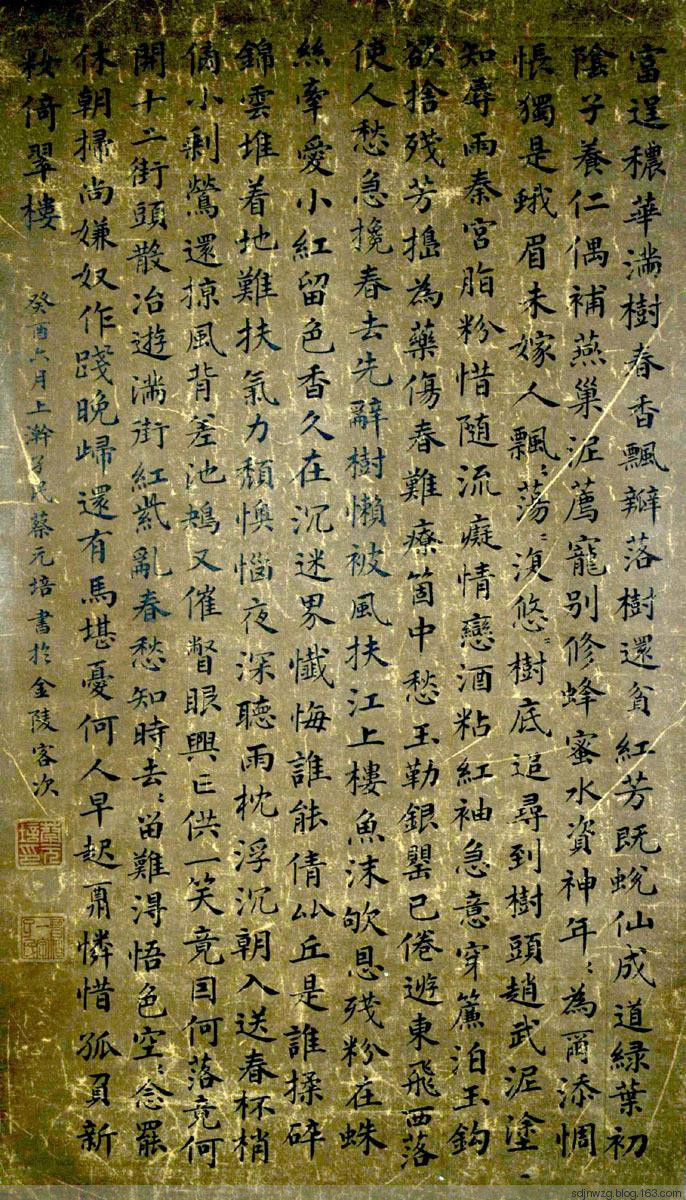 富逞穠華滿樹春香飄瓣落樹還貧紅芳既蛻仙成道綠葉初
陰子養仁偶補燕巢泥薦寵別修蜂蜜水資神年〻為爾添惆
悵獨是蛾眉未嫁人飄〻蕩〻復悠〻樹底追尋到樹頭趙武泥塗
知辱雨秦宮脂粉惜隨流癡情戀酒粘紅袖急意穿簾泊玉鈎
欲捨殘芳搗為藥傷春難療箇中愁玉勒銀罌已倦遊東飛西落
使人愁急攙春去先辭樹懶被風扶江上樓魚沫欱恩殘粉在蛛
絲牽愛小紅留色香久在沉迷界懺悔誰能倩比丘是誰揉碎
錦雲堆着地難扶氣力頹懊惱夜深聽雨枕浮沉朝入送春杯梢
傍小剩鶯還掠風背差池鴂又催瞥眼興亡供一笑竟因何落竟何
開十二街頭散冶遊滿街紅紫亂春愁知時去〻留難得悟色空〻念罷
休朝掃尚嫌奴作踐晚歸還有馬堪憂何人早起肅憐惜孤負新
粧倚翠樓
癸酉六月上澣孑民蔡元培書於金陵客次
sdjnwzg.blog.163.com